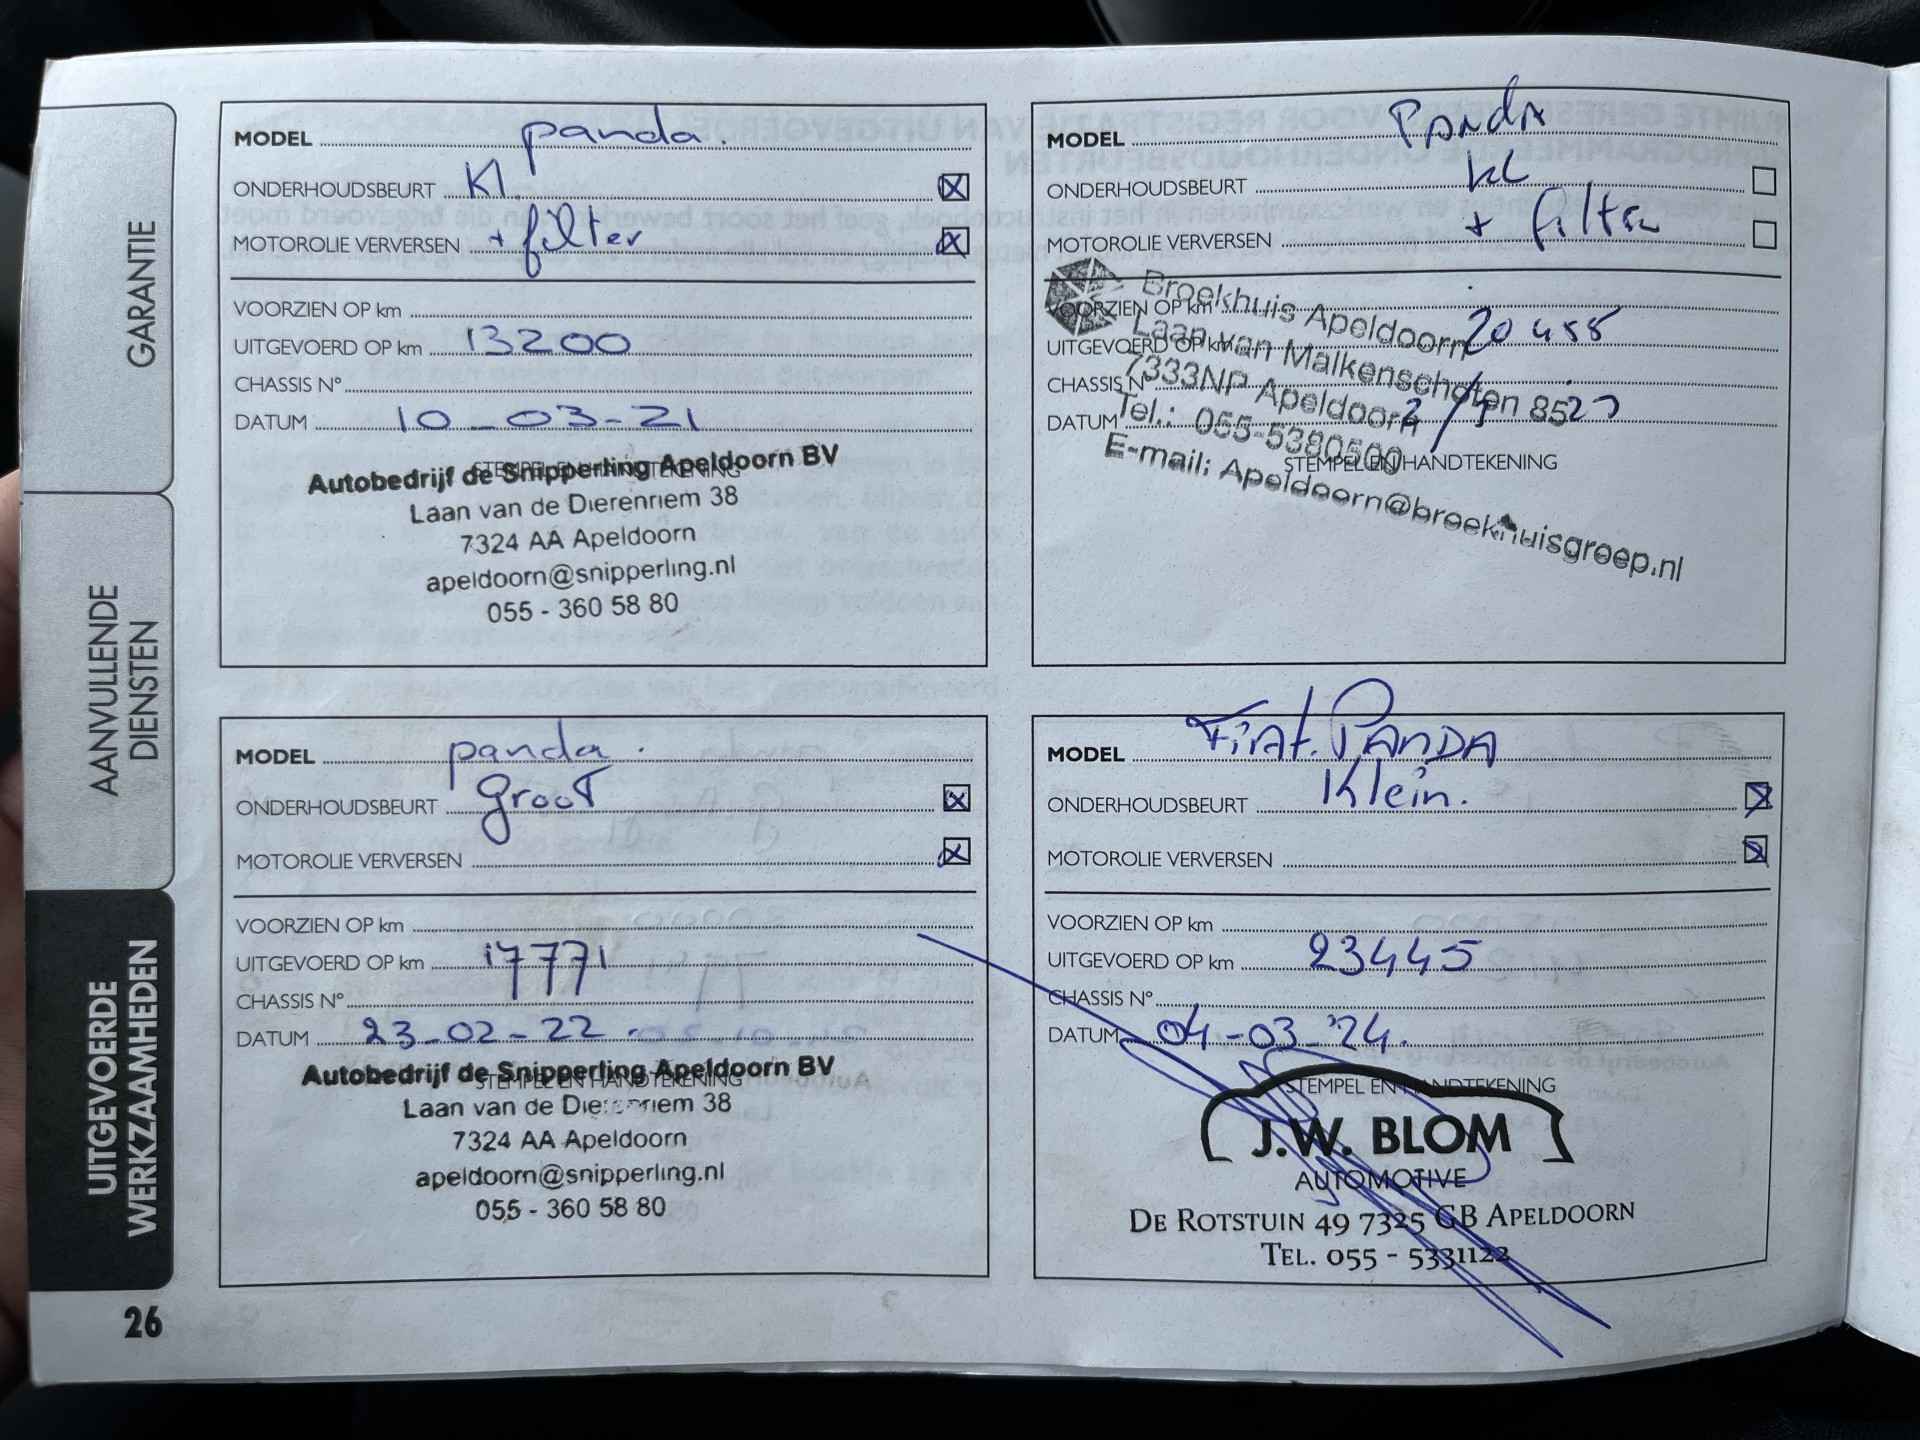 GARANTIE
AANVULLENDE
DIENSTEN
UITGEVOERDE
WERKZAAMHEDEN
26
MODEL panda.
ONDERHOUDSBEURT Kl.
MOTOROLIE VERVERSEN + filter
VOORZIEN OP km
UITGEVOERD OP km 13200
CHASSIS N°
DATUM 10-03-21
STEMPEL EN HANDTEKENING
Autobedrijf de Snipperling Apeldoorn BV
Laan van de Dierenriem 38
7324 AA Apeldoorn
apeldoorn@snipperling.nl
055 - 360 58 80
MODEL Panda
ONDERHOUDSBEURT kl
MOTOROLIE VERVERSEN + filter
VOORZIEN OP km
UITGEVOERD OP km 20455
CHASSIS N°
DATUM
STEMPEL EN HANDTEKENING
Broekhuis Apeldoorn
Laan van Malkenschoten 85
7333NP Apeldoorn
Tel.: 055-5380500
E-mail: Apeldoorn@broekhuisgroep.nl
MODEL panda.
ONDERHOUDSBEURT groot
MOTOROLIE VERVERSEN
VOORZIEN OP km
UITGEVOERD OP km 17771
CHASSIS N°
DATUM 23-02-22.
STEMPEL EN HANDTEKENING
Autobedrijf de Snipperling Apeldoorn BV
Laan van de Dierenriem 38
7324 AA Apeldoorn
apeldoorn@snipperling.nl
055 - 360 58 80
MODEL Fiat. PANDA
ONDERHOUDSBEURT Klein.
MOTOROLIE VERVERSEN
VOORZIEN OP km
UITGEVOERD OP km 23445
CHASSIS N°
DATUM 04-03-'24.
STEMPEL EN HANDTEKENING
J.W. BLOM
AUTOMOTIVE
DE ROTSTUIN 49 7325 GB APELDOORN
TEL. 055 - 5331122